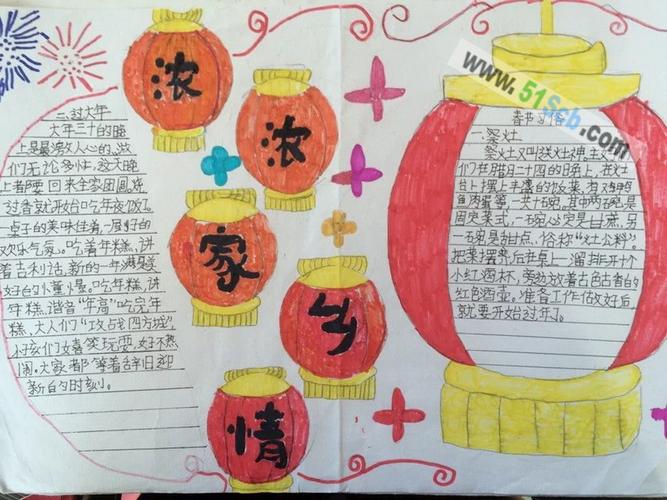 浓
浓
家
乡
情
二、过大年
大年三十的晚
上是最激人心的,做
们无论多忙,这天晚
上都要回来全家团圆,烧
过香就开始吃年夜饭了。
桌子的美味佳肴,一屋子的
欢乐气氛。吃着年糕,讲
着吉利话,新的一年满是美
好的小董小景。吃年糕,讲
年糕,谐音“年高”吃完年
糕,大人们“攻占四方城”,
小孩们嬉笑玩耍,好不热
闹。大家都等着辞旧迎
新的时刻。
www.51Scb.com
春节习俗
一.祭灶
祭灶又叫送灶神。主人
们在腊月二十四的日务上,在灶
台上摆上丰盛的饭菜,有鸡鸭
鱼肉蛋等,一共十碗,其中两碗是
固定菜式,一碗必定是甘蔗,另
一碗是甜点,俗称“灶公料”。
把菜摆齐后在桌上一溜排开十个
小红酒杯,旁边放着古色古香的
红色酒壶。准备工作做好后,
就要开始过年了。